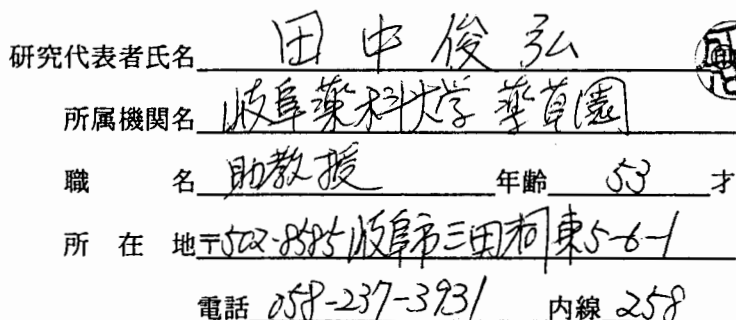 研究代表者氏名 田中俊弘
所属機関名 岐阜薬科大学 薬草園
職 名 助教授 年齢 53 才
所 在 地 〒502-8585 岐阜市三田洞東5-6-1
電話 058-237-3931 内線 258